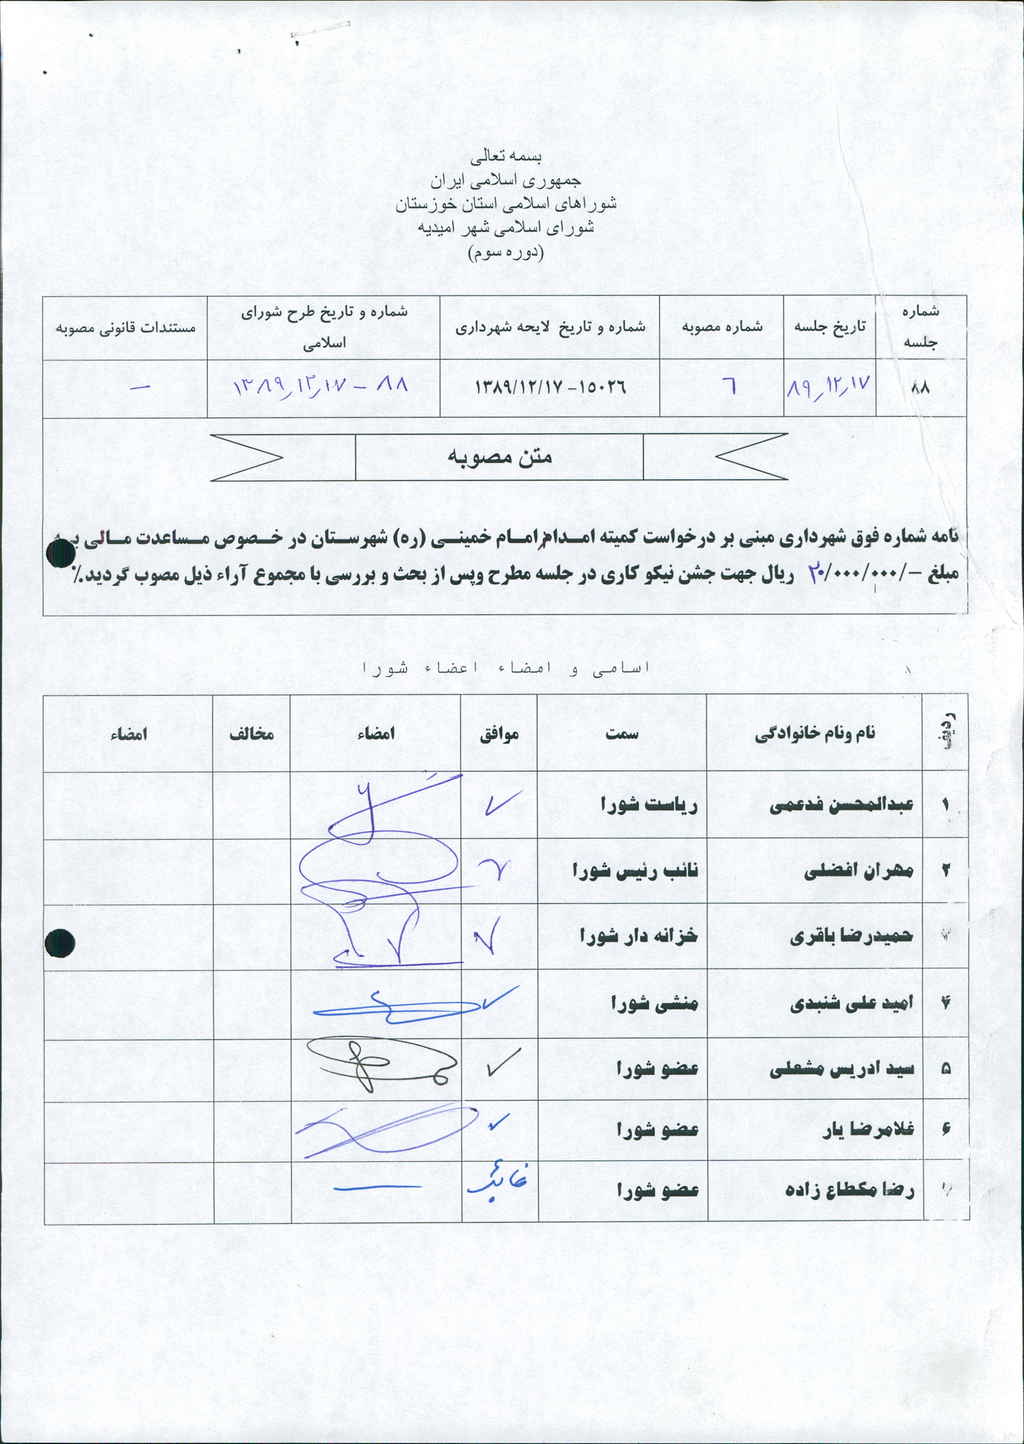 بسمه تعالی
جمهوری اسلامی ایران
شوراهای اسلامی استان خوزستان
شورای اسلامی شهر امیدیه
(دوره سوم)
شماره جلسه	تاریخ جلسه	شماره مصوبه	شماره و تاریخ لایحه شهرداری	شماره و تاریخ طرح شورای اسلامی	مستندات قانونی مصوبه
۸۸	۸۹٫۱۲٫۱۷	۶	۱۵۰۲۶-۱۳۸۹/۱۲/۱۷	۸۸ - ۱۳۸۹٫۱۲٫۱۷	—
متن مصوبه
نامه شماره فوق شهرداری مبنی بر درخواست کمیته امداد امام خمینی (ره) شهرستان در خصوص مساعدت مالی به
مبلغ -/۲۰/۰۰۰/۰۰۰ ریال جهت جشن نیکو کاری در جلسه مطرح وپس از بحث و بررسی با مجموع آراء ذیل مصوب گردید.٪
اسامی و امضاء اعضاء شورا
ردیف	نام ونام خانوادگی	سمت	موافق	امضاء	مخالف	امضاء
۱	عبدالمحسن فدعمی	ریاست شورا	✓
۲	مهران افضلی	نائب رئیس شورا	✓
۳	حمیدرضا باقری	خزانه دار شورا	✓
۴	امید علی شنبدی	منشی شورا	✓
۵	سید ادریس مشعلی	عضو شورا	✓
۶	غلامرضا یار	عضو شورا	✓
۷	رضا مکطاع زاده	عضو شورا	غائب	—